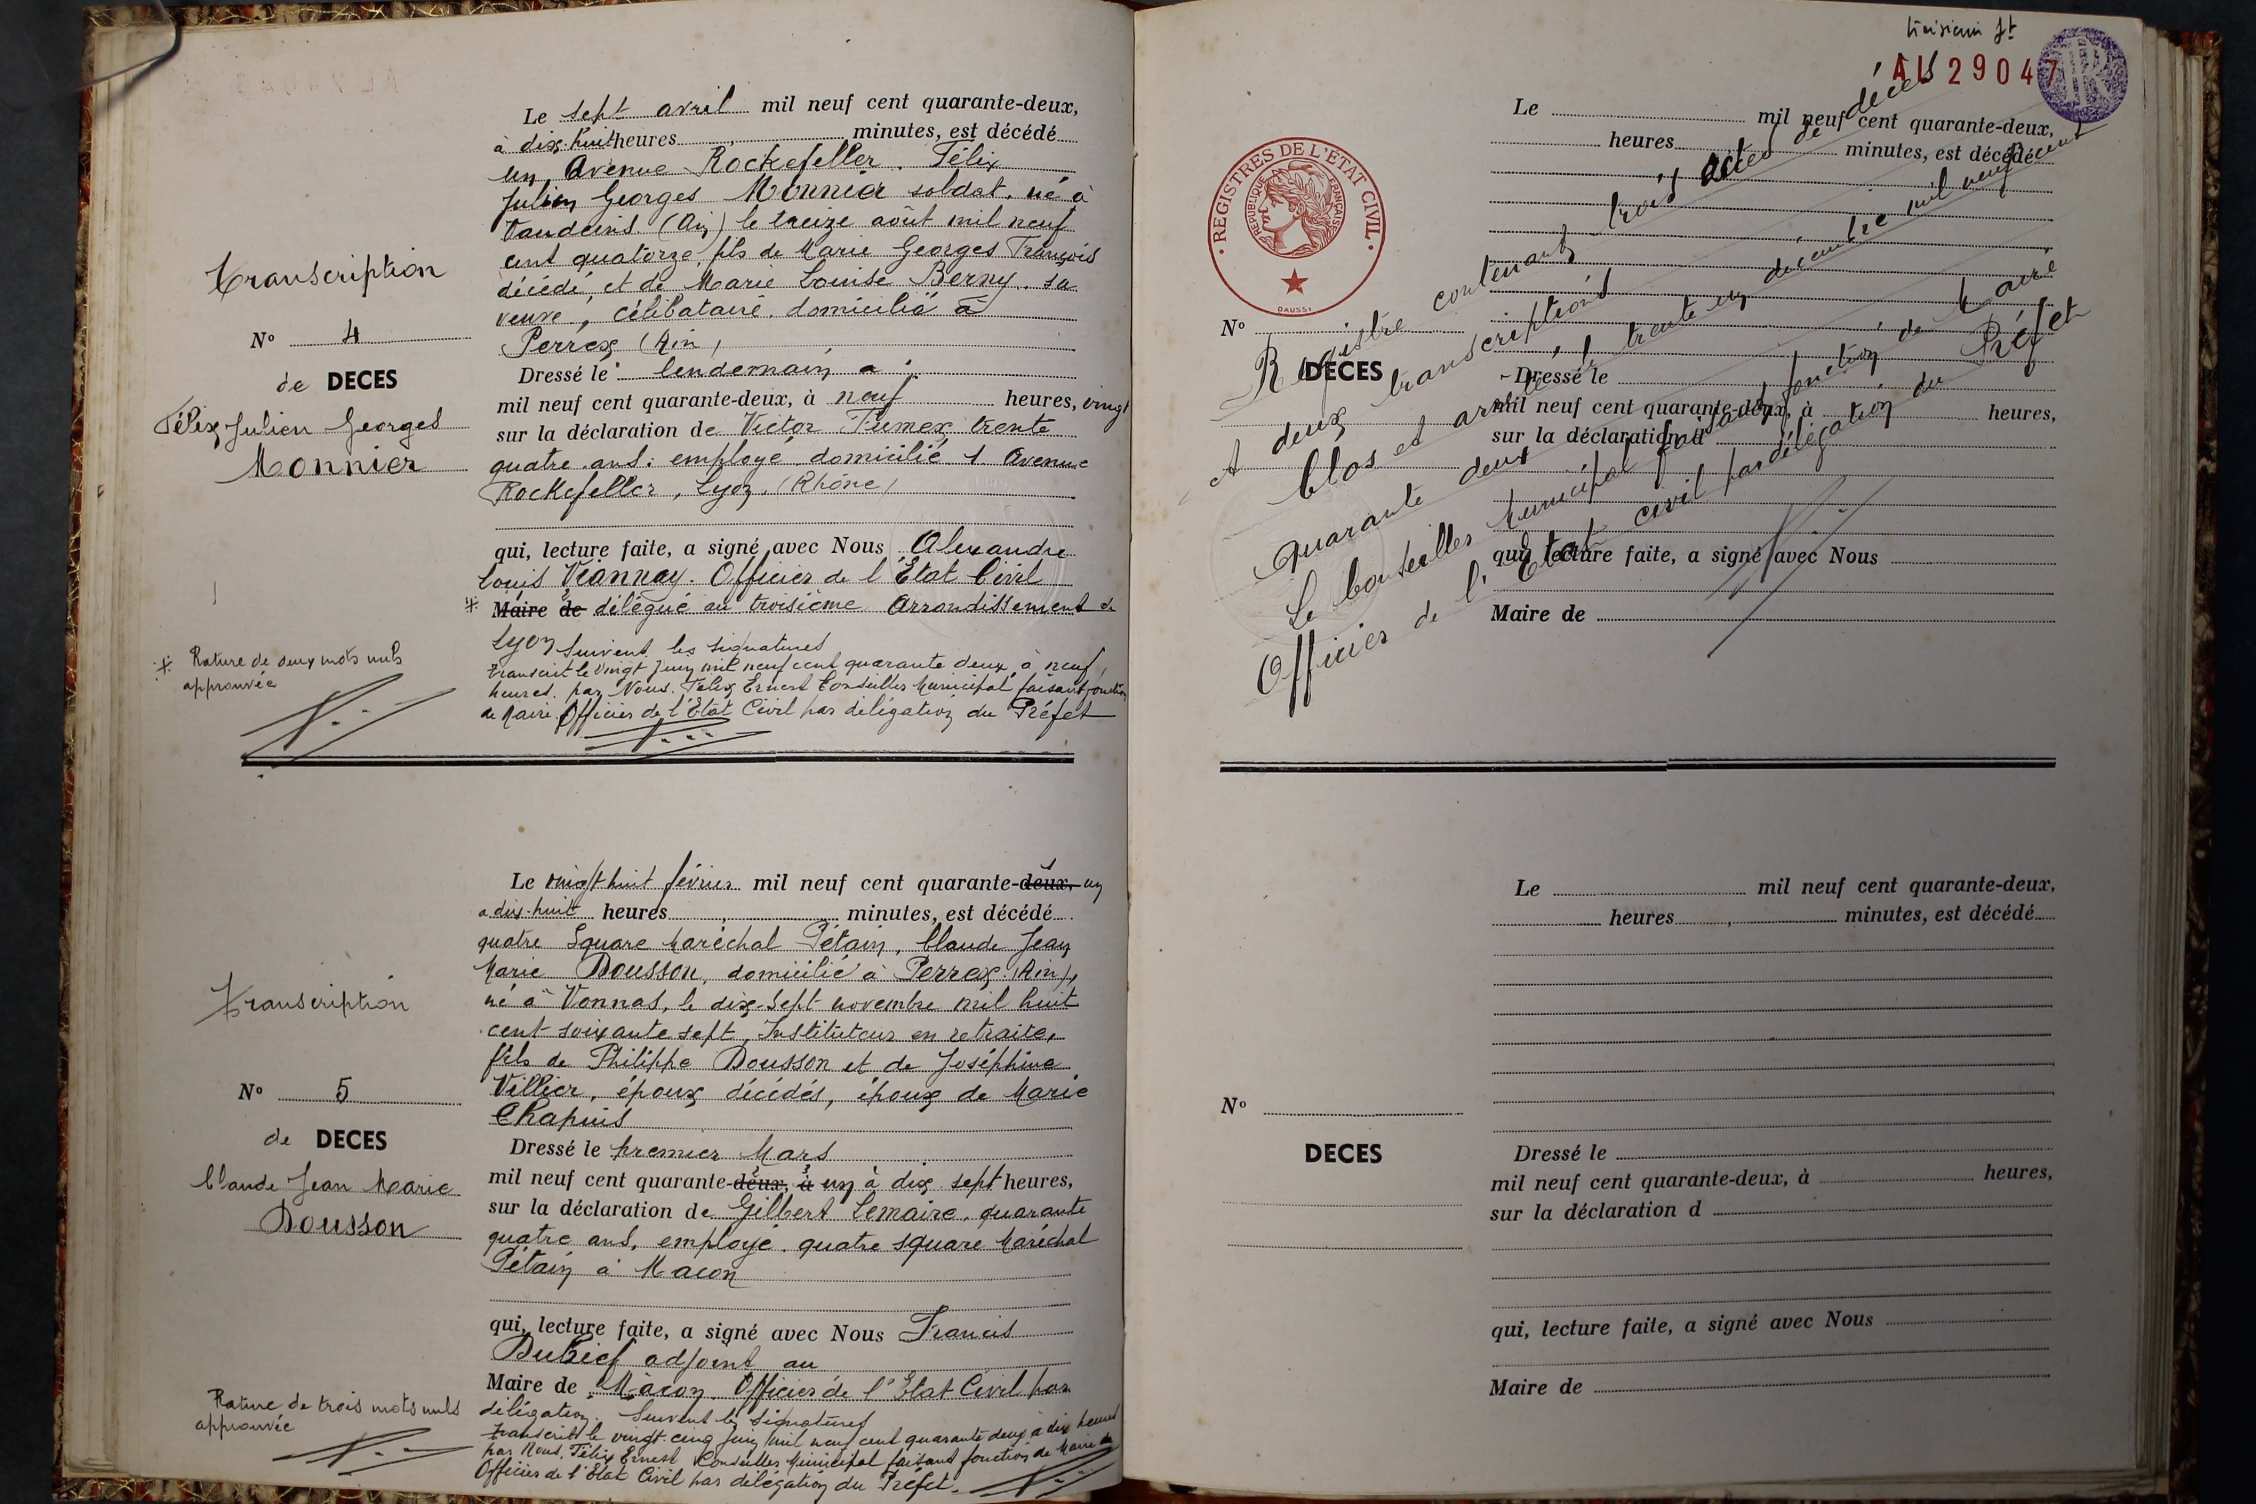 Transcription
N° 4
de DECES
Félix Julien Georges
Monnier
Le sept avril mil neuf cent quarante-deux,
à dix-huit heures, minutes, est décédé
un Avenue Rockefeller. Félix
Julien Georges Monnier soldat, né à
Vandeins (Ain) le treize août mil neuf
cent quatorze, fils de Marie Georges François
décédé, et de Marie Louise Berny. sa
veuve, célibataire. domicilié à
Perrex (Ain)
Dressé le lendemain à
mil neuf cent quarante-deux, à neuf heures, vingt
sur la déclaration de Victor Fumex trente
quatre ans. employé domicilié 1 Avenue
Rockefeller, Lyon. (Rhône)
qui, lecture faite, a signé avec Nous Alexandre
Louis Viannay. Officier de l'Etat Civil
Maire de délégué au troisième Arrondissement de
Lyon Suivent les signatures
Transcrit le vingt Juin mil neuf cent quarante deux à neuf
heures. par Nous. Félix Ernest Conseiller Municipal faisant fonction
de Maire. Officier de l'Etat Civil par délégation du Préfet
Rature de deux mots nuls
approuvée
Transcription
N° 5
de DECES
Claude Jean Marie
Dousson
Le vingt huit février mil neuf cent quarante-deux, un
à dix-huit heures, minutes, est décédé
quatre Square Maréchal Pétain, Claude Jean
Marie Dousson, domicilié à Perrex (Ain),
né à Vonnas, le dix-sept novembre mil huit
cent soixante sept, Instituteur en retraite,
fils de Philippe Dousson et de Joséphine
Villier, époux décédés, époux de Marie
Chapuis
Dressé le premier Mars
mil neuf cent quarante-deux, à un à dix sept heures,
sur la déclaration de Gilbert Lemaire. quarante
quatre ans, employé. quatre square Maréchal
Pétain à Macon
qui, lecture faite, a signé avec Nous Francis
Dubief adjoint au
Maire de Mâcon Officier de l'Etat Civil par
délégation. Suivent les signatures
Transcrit le vingt-cinq Juin mil neuf cent quarante deux à dix heures
par Nous. Félix Ernest Conseiller Municipal faisant fonction de Maire de
Officier de l'Etat Civil par délégation du Préfet.
Rature de trois mots nuls
approuvée
AL 29047
REGISTRES DE L'ETAT CIVIL
REPUBLIQUE FRANÇAISE
DAUSSY
Le mil neuf cent quarante-deux,
heures, minutes, est décédé
N°
DECES
Dressé le
mil neuf cent quarante-deux, à heures,
sur la déclaration d
qui, lecture faite, a signé avec Nous
Maire de
Registre contenant trois actes de décès
et deux transcriptions
Clos et arrêté le trente un décembre mil neuf cent
quarante deux
Le Conseiller Municipal faisant fonction de Maire
Officier de l'Etat civil par délégation du Préfet
Le mil neuf cent quarante-deux,
heures, minutes, est décédé
N°
DECES
Dressé le
mil neuf cent quarante-deux, à heures,
sur la déclaration d
qui, lecture faite, a signé avec Nous
Maire de